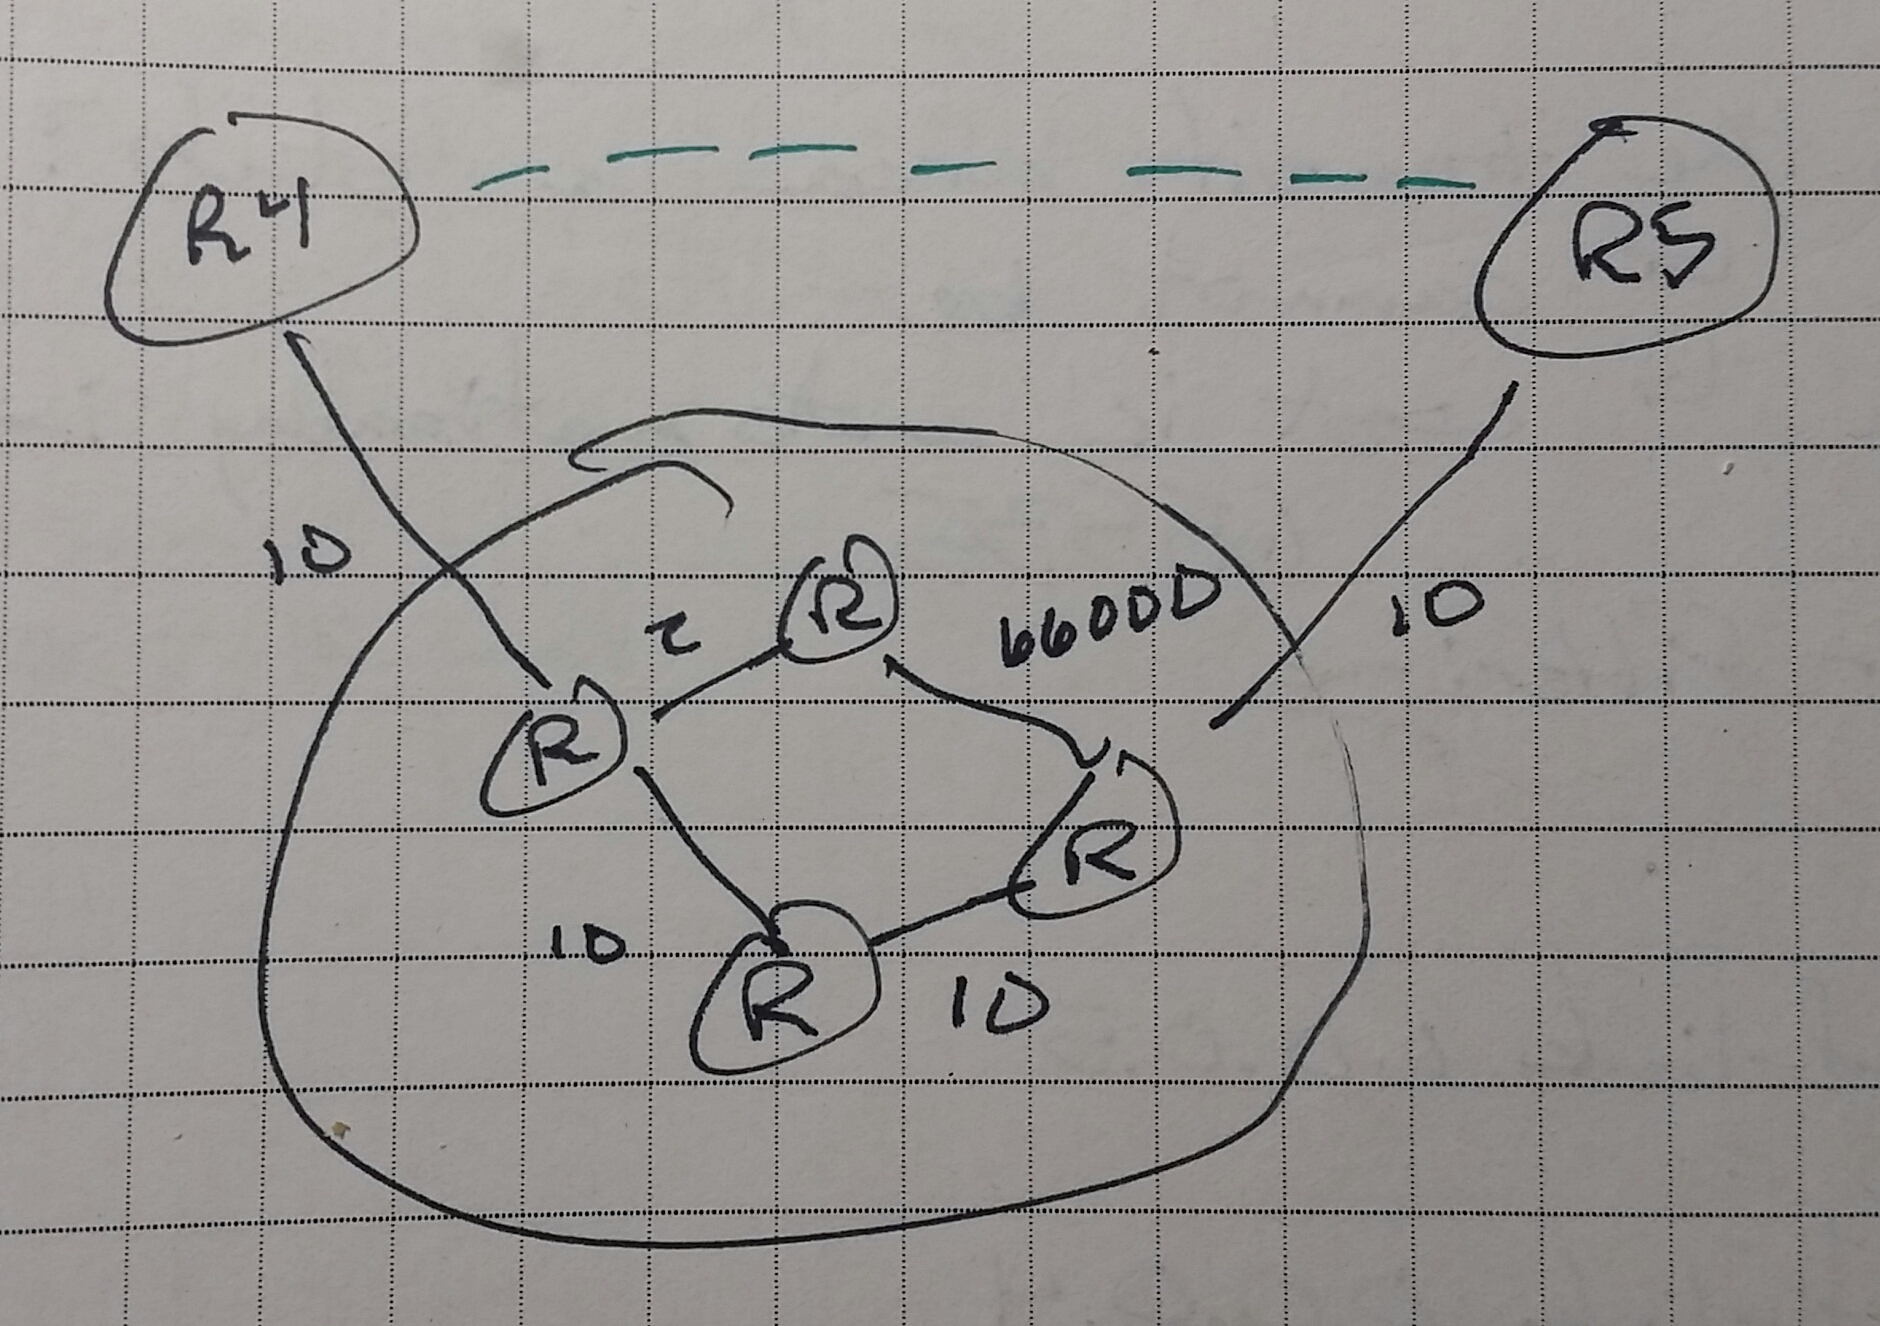 R4
R5
10
2
R
66000
10
R
R
10
R
10